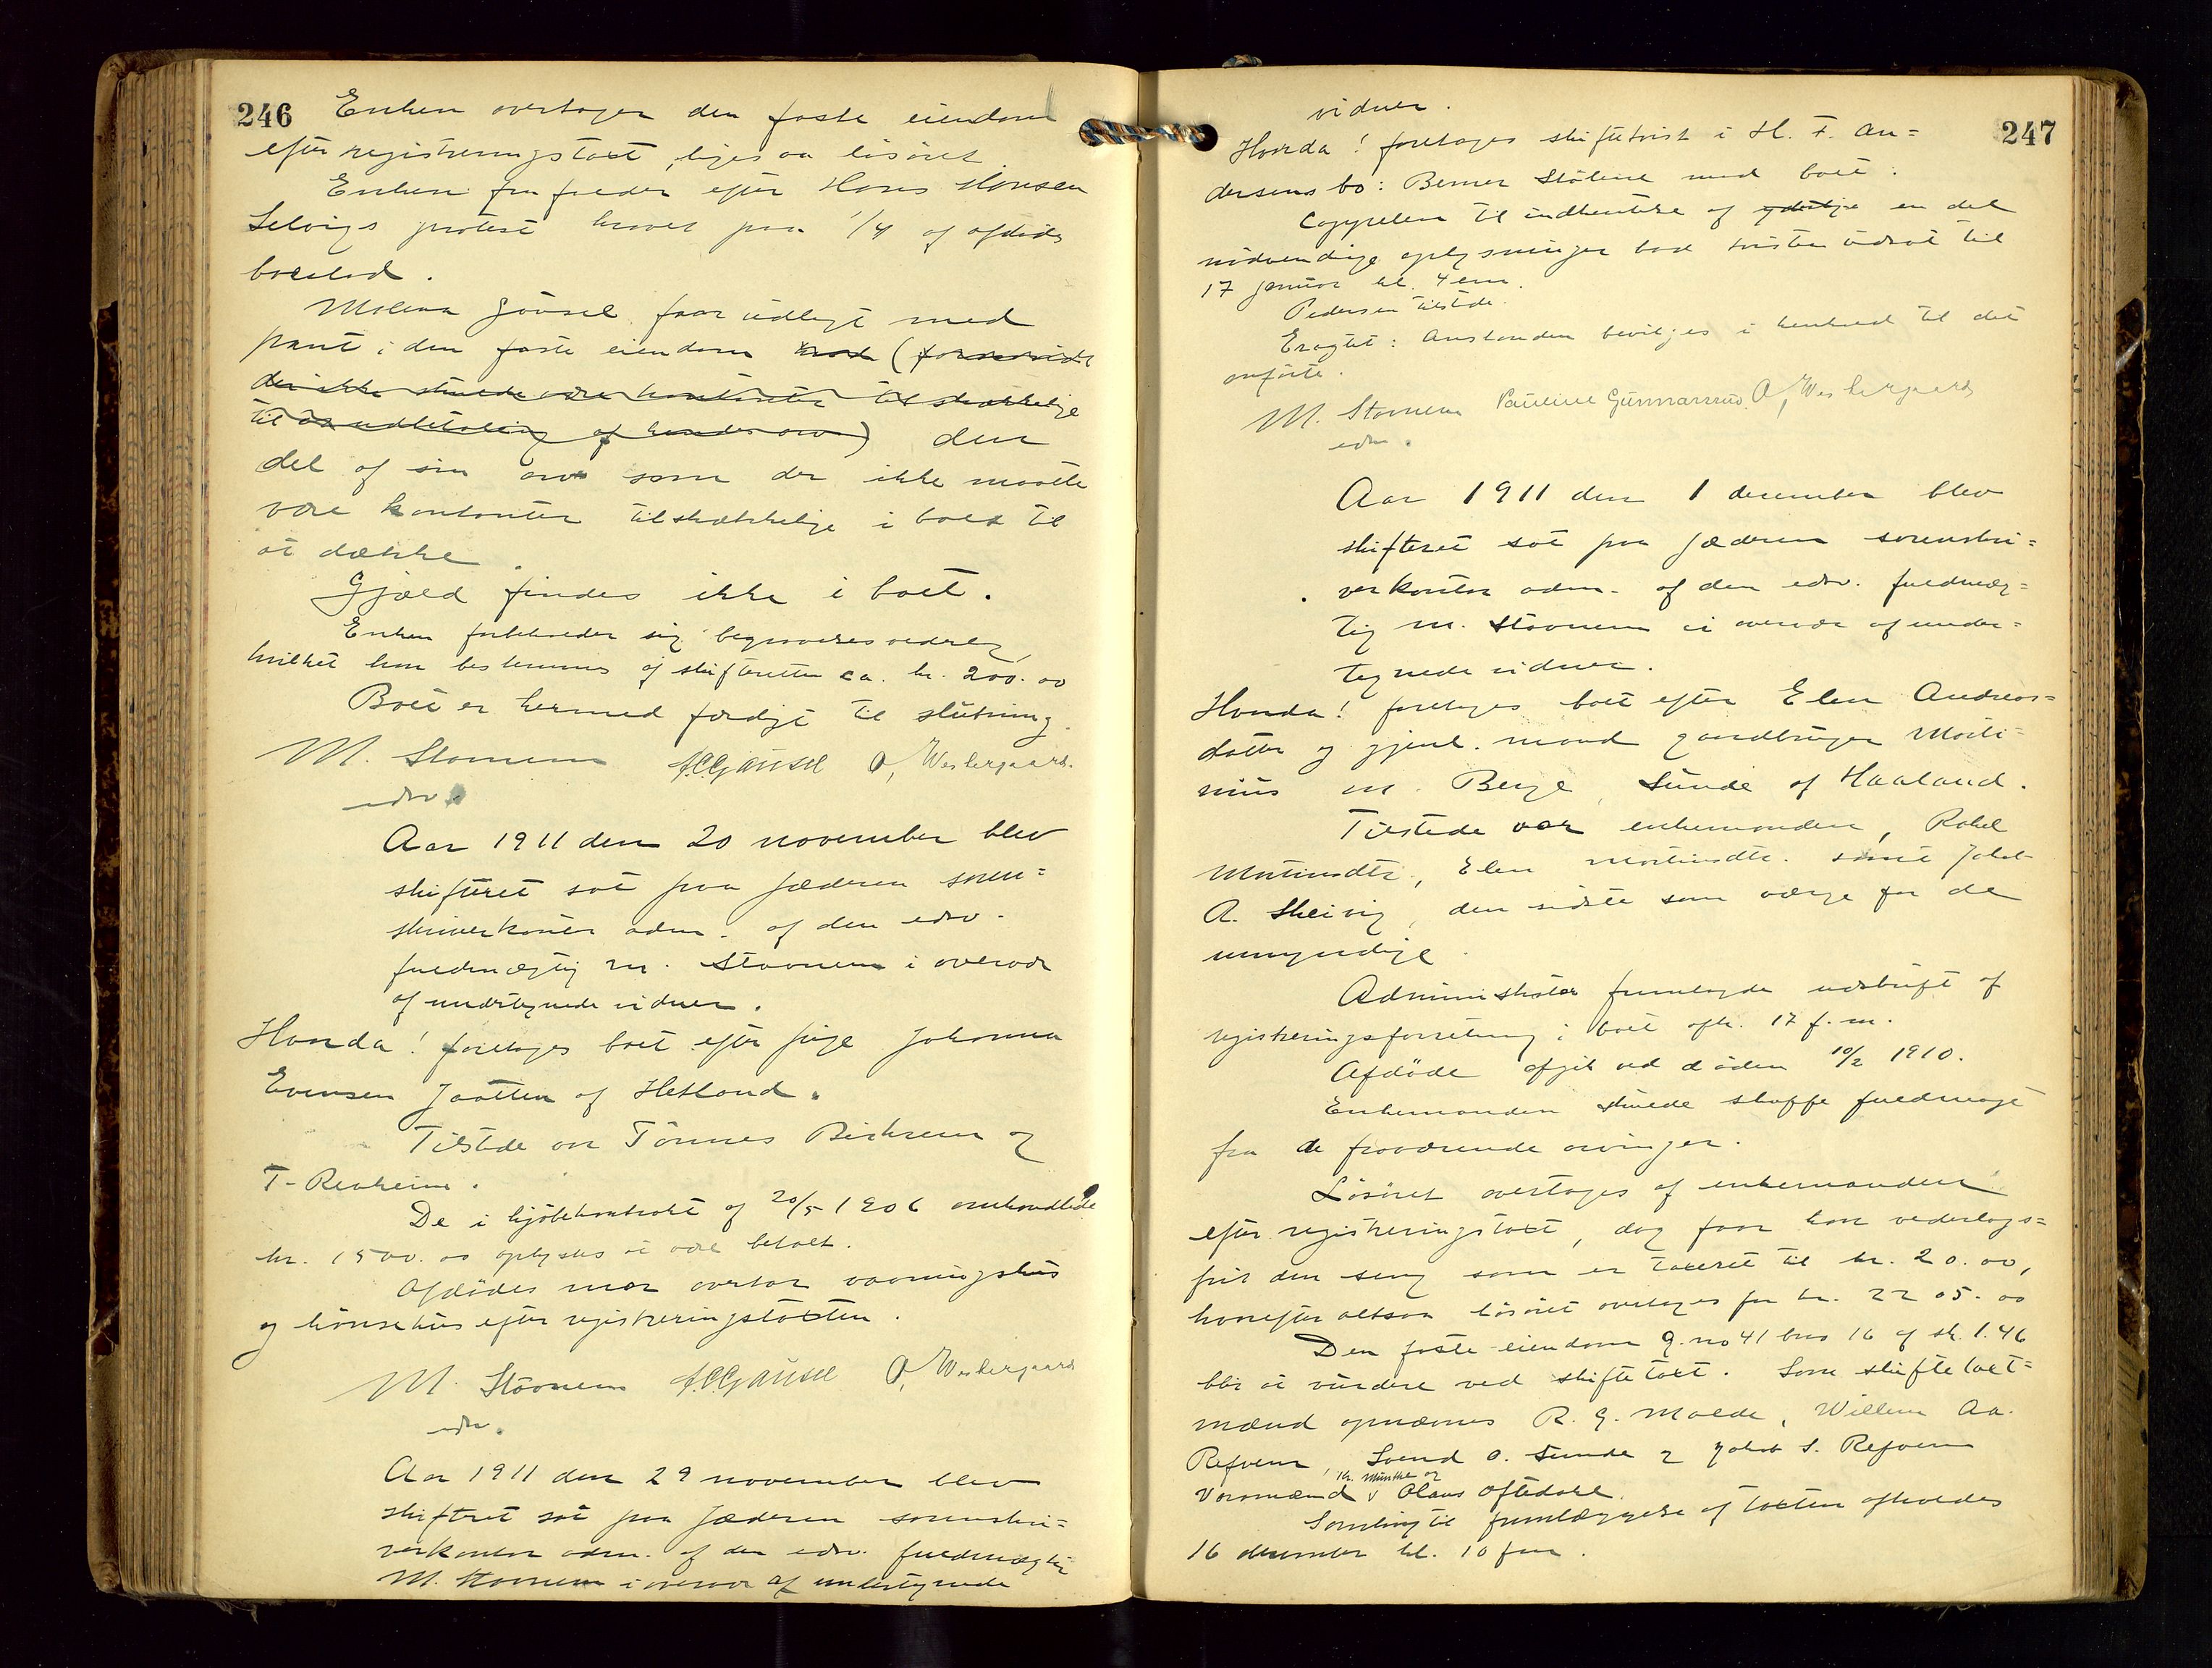 246
Enken overtager den faste eiendom
efter registreringstaxt, ligesaa løsøret
Enken fra efter Hans Hansen
Selvigs protest kravet paa 1/4 af afdødes
boeslod.
Malena Gausel faar udlagt med
pant i den faste eiendom
den ikke skulde være kontanter tilstrækkelige
til udbetaling af hendes arv) den
del af sin arv som der ikke maatte
være kontanter tilstrækkelige i boet til
at dække
Gjæld findes ikke i boet.
Enken forbeholder sig begravelsesvederlag,
hvilket kan bestemmes af skifteretten ca. kr. 200.00
Boet er hermed færdigt til slutning.
M. Stornem A.C.Gausel O, Westergaard.
edsv.
Aar 1911 den 20 november blev
skifteret sat paa Jæderen soren=
skriverkontor adm. af den edsv.
fuldmægtig M. Stornem i overvær
af undertegnede vidner.
Hvorda! foretages boet efter pige Johanna
Evensen Jaatten af Hetland.
Tilstede var Tønnes Birkrem og
T. Revheim.
De i kjøbekontrakt af 20/5 1906 omhandlede
kr. 1500.00 oplystes at være betalt.
Afdødes mor overtar vaaningshus
og hønsehus efter registreringstaxten.
M. Stornem A.C.Gausel O, Westergaard
edsv.
Aar 1911 den 29 november blev
skifteret sat paa Jæderen sorenskri=
verkontor adm. af den edsv. fuldmægtig
M. Stornem i overvær af undertegnede
247
vidner.
Hvorda! foretages skiftetvist i H. F. An=
dersens bo: Berner Stølene mod boet.
Coppelen til indhentelse af ydterlige en del
nødvendige oplysninger bad tvisten udsat til
17 januar kl. 4 em.
Pedersen tilstede.
Eragtet: Anstanden bevilges i henhold til det
anførte.
M. Stornem Pauline Gunnarsrud. O, Westergaard
edsv.
Aar 1911 den 1 december blev
skifteret sat paa Jæderen sorenskri=
verkontor adm. af den edsv. fuldmæg=
tig M. Stornem i overvær af under=
tegnede vidner.
Hvorda! foretages boet efter Elen Andreas=
datter og gjenl. mand gaardbruger Marti=
nius M. Berge, Sunde af Haaland.
Tilstede var enkemanden, Rakel
Martinsdtr, Elen Martinsdtr. samt Jakob
A. Skeivig, den sidste som værge for de
umyndige.
Administrator fremlagde udskrift af
registreringsforretning i boet afh. 17 f.m.
Afdøde afgik ved døden 10/2 1910.
Enkemanden skulde skaffe fuldmagt
fra de fraværende arvinger.
Løsøret overtages af enkemanden
efter registreringstaxt, dog faar han vederlags=
frit den seng som er taxeret til kr. 20.00,
hvorefter altsaa løsøret overtages for kr. 2205.00
Den faste eiendom g.no 41 bno 16 af sk. 1.46
blir at vurdere ved skiftetaxt. Som skiftetaxt=
mænd opnævnes R. G. Malde, Willem Aa.
Refvem, Svend O. Sunde og Jakob S. Refvem
Th. Munthe og
Varamænd v Olaus Oftedal.
Samling til fremlæggelse af taxten afholdes
16 december kl. 10 fm.